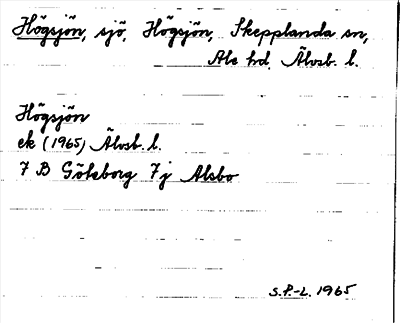 Högsjön, sjö, Högsjön, Skepplanda sn,
Ale hd, Älvsb. l.
Högsjön
ek (1965) Älvsb. l.
7 B Göteborg 7j Alsbo
S.P.-L. 1965